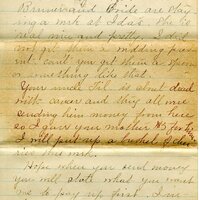 Brunner and Bride are stay
ing a wk at Ida's. She is
real nice and pretty. I did
not get them a wedding pres
ent, can't you get them a spoon
or something like that.
Your uncle is about dead
with cancer and they all are
sending him money from here
so I gave your mother $5 for
I will put up a bushel of
this wk.
Hope when you send money
you will state what you want
me to pay up first. I am